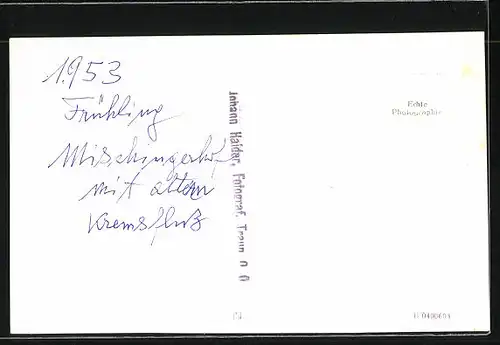 1953
Frühling
Mischingerhof
mit altem
Kremsfluß
Johann Haider, Fotograf, Traun O. Ö.
Echte
Photographie